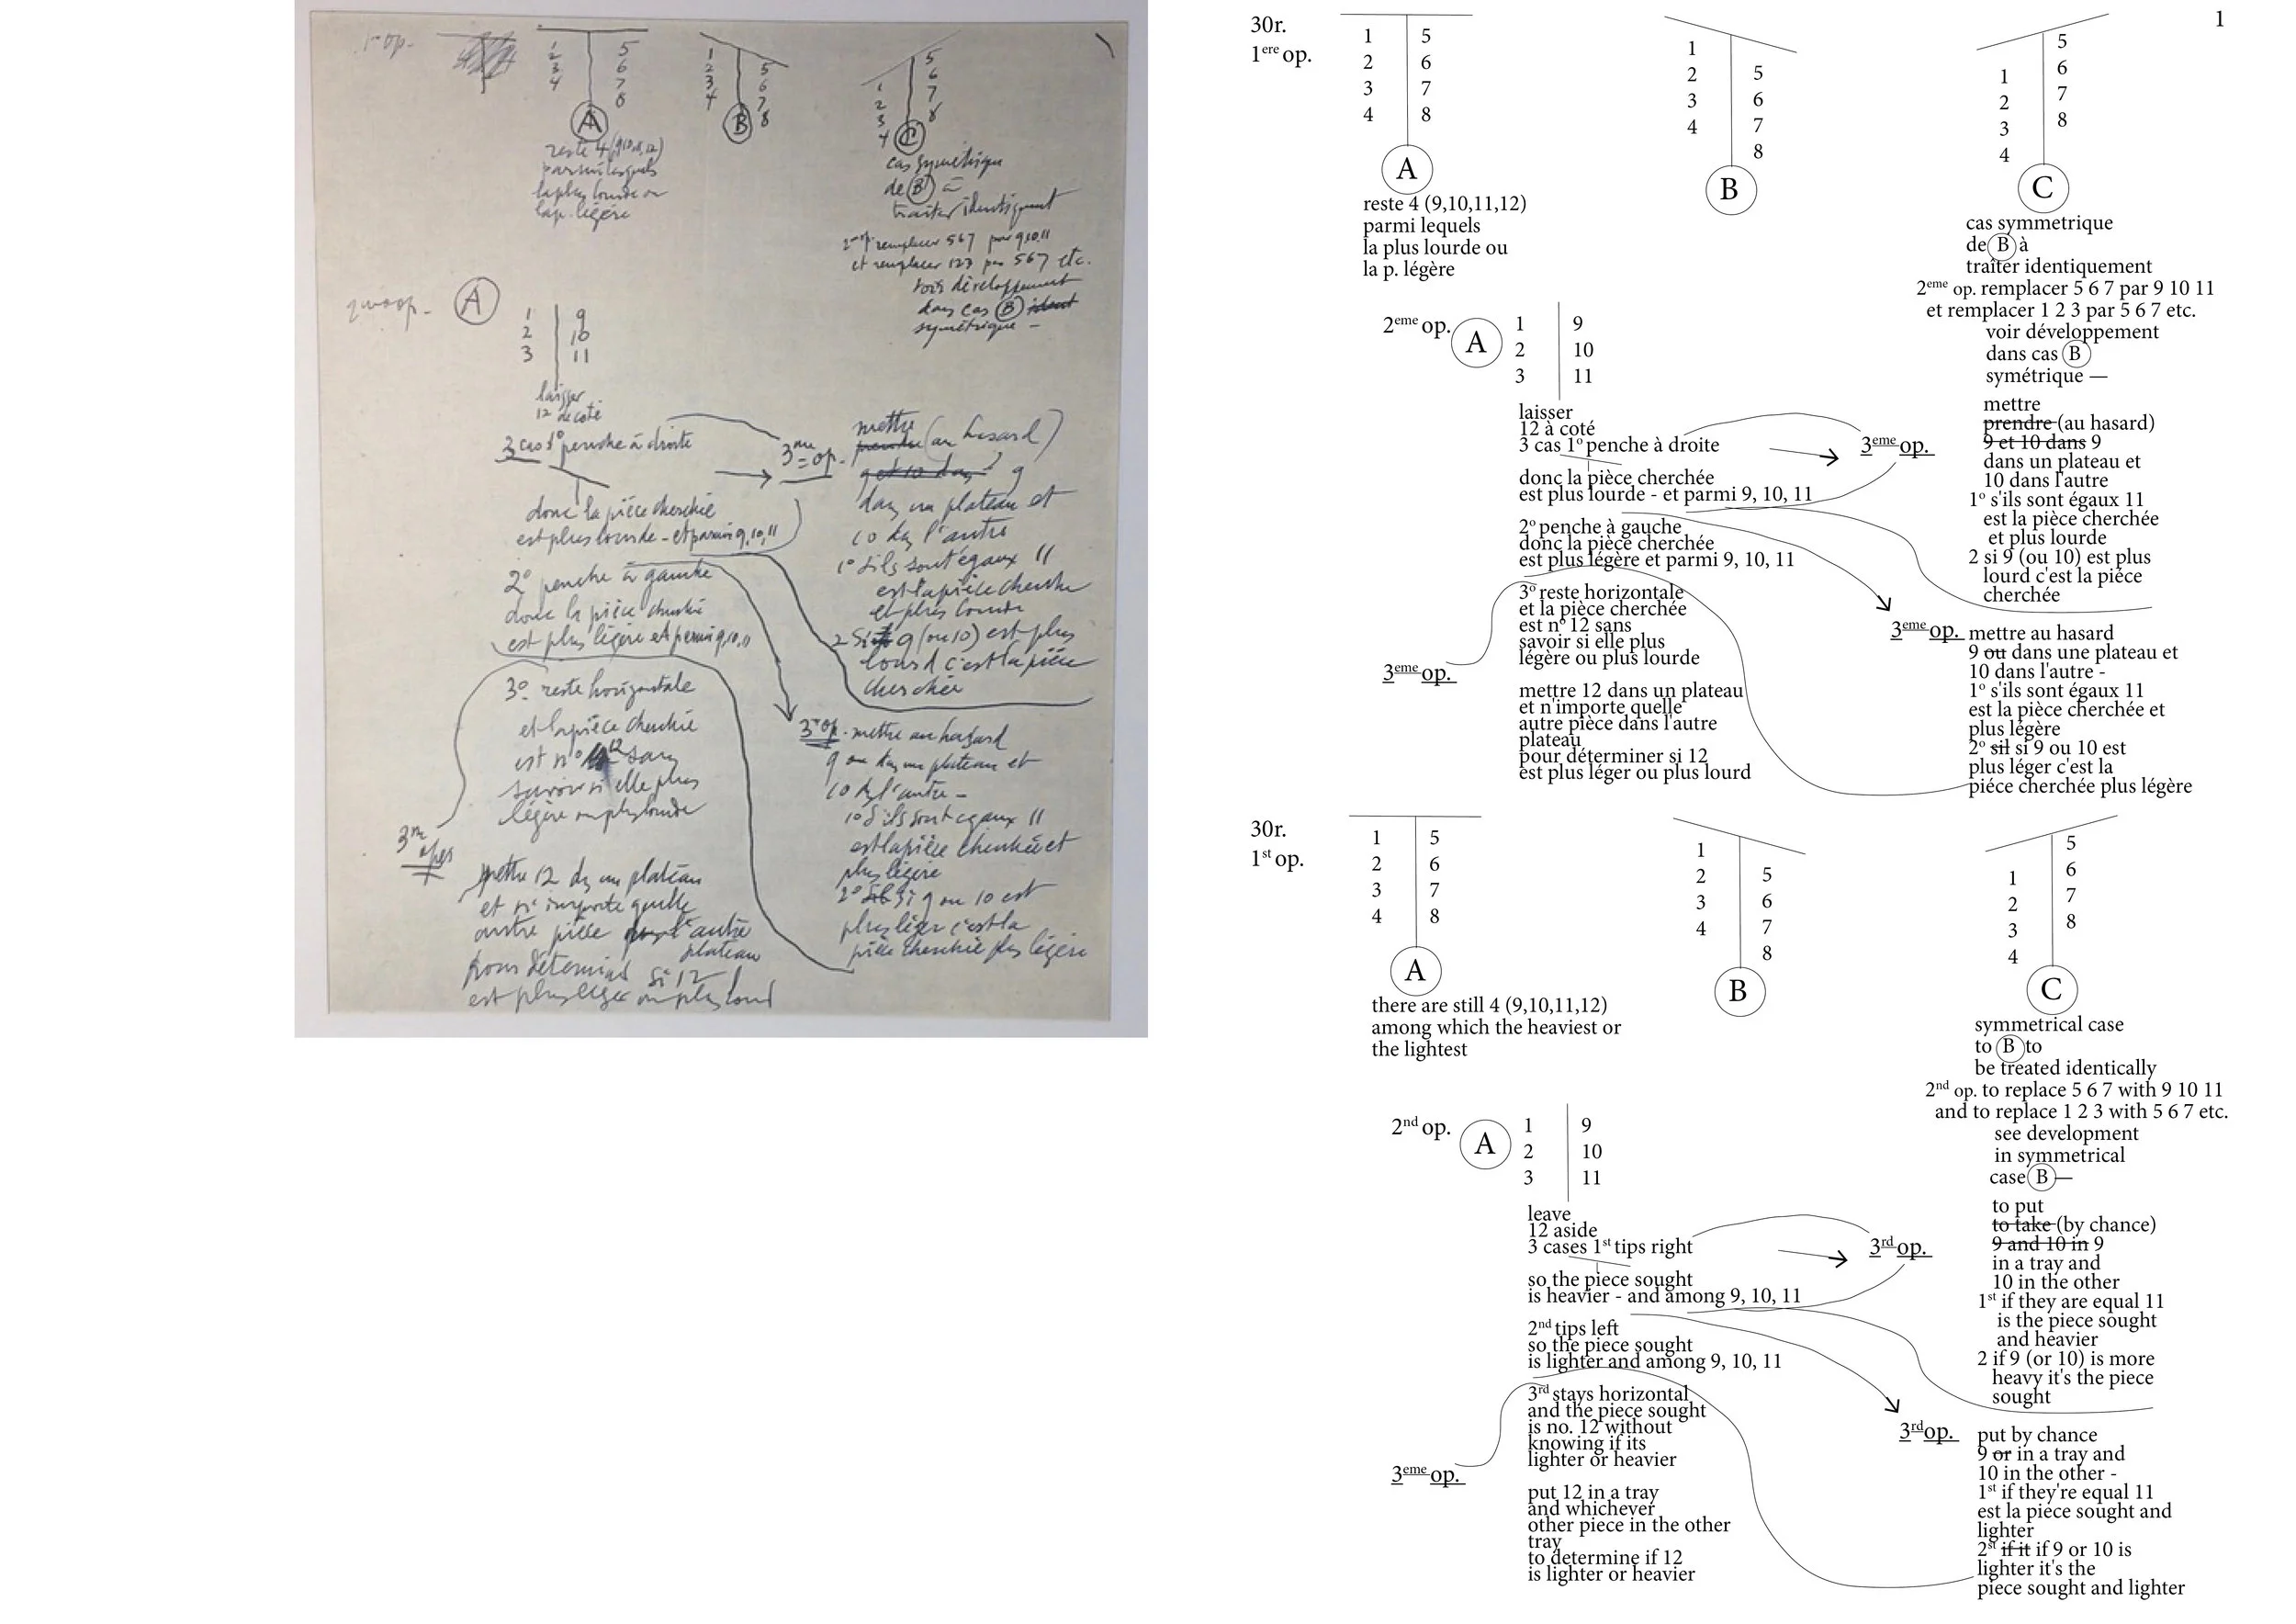 1
5
2
6
3
7
4
8
A
reste 4 (9,10,11,12)
parmi lesquels
la plus lourde ou
la p. légère
1
5
2
6
3
7
4
8
B
5
6
7
8
1
2
3
4
C
cas symétrique
de B à
traiter identiquement
2me op. remplacer 5 6 7 par 9 10 11
et remplacer 123 par 567 etc.
voir développement
dans cas B
symétrique —
op. A
1 9
2 10
3 11
laisser
12 de coté
3 cas 1° penche à droite
donc la pièce cherchée
est plus lourde - et parmi 9,10,11
2° penche à gauche
donc la pièce cherchée
est plus légère et parmi 9,10,11
3° reste horizontale
et la pièce cherchée
est n° 12 sans
savoir si elle plus
légère ou plus lourde
3me oper
mettre 12 ds un plateau
et n'importe quelle
autre pièce l'autre
plateau
pour déterminer si 12
est plus léger ou plus lourd
3me op.
mettre
prendre (au hasard)
9 et 10 dans 9
dans un plateau et
10 ds l'autre
1° s'ils sont égaux 11
est la pièce cherchée
et plus lourde
2 si 9 (ou 10) est plus
lourd c'est la pièce
cherchée
3me op. mettre au hasard
9 ou ds un plateau et
10 ds l'autre -
1° s'ils sont egaux 11
est la pièce cherchée et
plus légère
2° sil si 9 ou 10 est
plus léger c'est la
pièce cherchée plus légère
1
30r.
1ere op.
1 5
2 6
3 7
4 8
A
reste 4 (9,10,11,12)
parmi lequels
la plus lourde ou
la p. légère
1
2 5
3 6
4 7
8
B
5
1 6
2 7
3 8
4
C
cas symmetrique
de B à
traiter identiquement
2eme op. remplacer 5 6 7 par 9 10 11
et remplacer 1 2 3 par 5 6 7 etc.
voir développement
dans cas B
symétrique —
2eme op. A
1 9
2 10
3 11
laisser
12 à coté
3 cas 1° penche à droite
donc la pièce cherchée
est plus lourde - et parmi 9, 10, 11
2° penche à gauche
donc la pièce cherchée
est plus légère et parmi 9, 10, 11
3° reste horizontale
et la pièce cherchée
est n° 12 sans
savoir si elle plus
légère ou plus lourde
3eme op.
mettre 12 dans un plateau
et n'importe quelle
autre pièce dans l'autre
plateau
pour déterminer si 12
est plus léger ou plus lourd
3eme op.
mettre
prendre (au hasard)
9 et 10 dans 9
dans un plateau et
10 dans l'autre
1° s'ils sont égaux 11
est la pièce cherchée
et plus lourde
2 si 9 (ou 10) est plus
lourd c'est la piéce
cherchée
3eme op. mettre au hasard
9 ou dans une plateau et
10 dans l'autre -
1° s'ils sont égaux 11
est la pièce cherchée et
plus légère
2° sil si 9 ou 10 est
plus léger c'est la
piéce cherchée plus légère
30r.
1st op.
1 5
2 6
3 7
4 8
A
there are still 4 (9,10,11,12)
among which the heaviest or
the lightest
1
2 5
3 6
4 7
8
B
5
1 6
2 7
3 8
4
C
symmetrical case
to B to
be treated identically
2nd op. to replace 5 6 7 with 9 10 11
and to replace 1 2 3 with 5 6 7 etc.
see development
in symmetrical
case B —
2nd op. A
1 9
2 10
3 11
leave
12 aside
3 cases 1st tips right
so the piece sought
is heavier - and among 9, 10, 11
2nd tips left
so the piece sought
is lighter and among 9, 10, 11
3rd stays horizontal
and the piece sought
is no. 12 without
knowing if its
lighter or heavier
3eme op.
put 12 in a tray
and whichever
other piece in the other
tray
to determine if 12
is lighter or heavier
3rd op.
to put
to take (by chance)
9 and 10 in 9
in a tray and
10 in the other
1st if they are equal 11
is the piece sought
and heavier
2 if 9 (or 10) is more
heavy it's the piece
sought
3rd op. put by chance
9 or in a tray and
10 in the other -
1st if they're equal 11
est la piece sought and
lighter
2st if it if 9 or 10 is
lighter it's the
piece sought and lighter